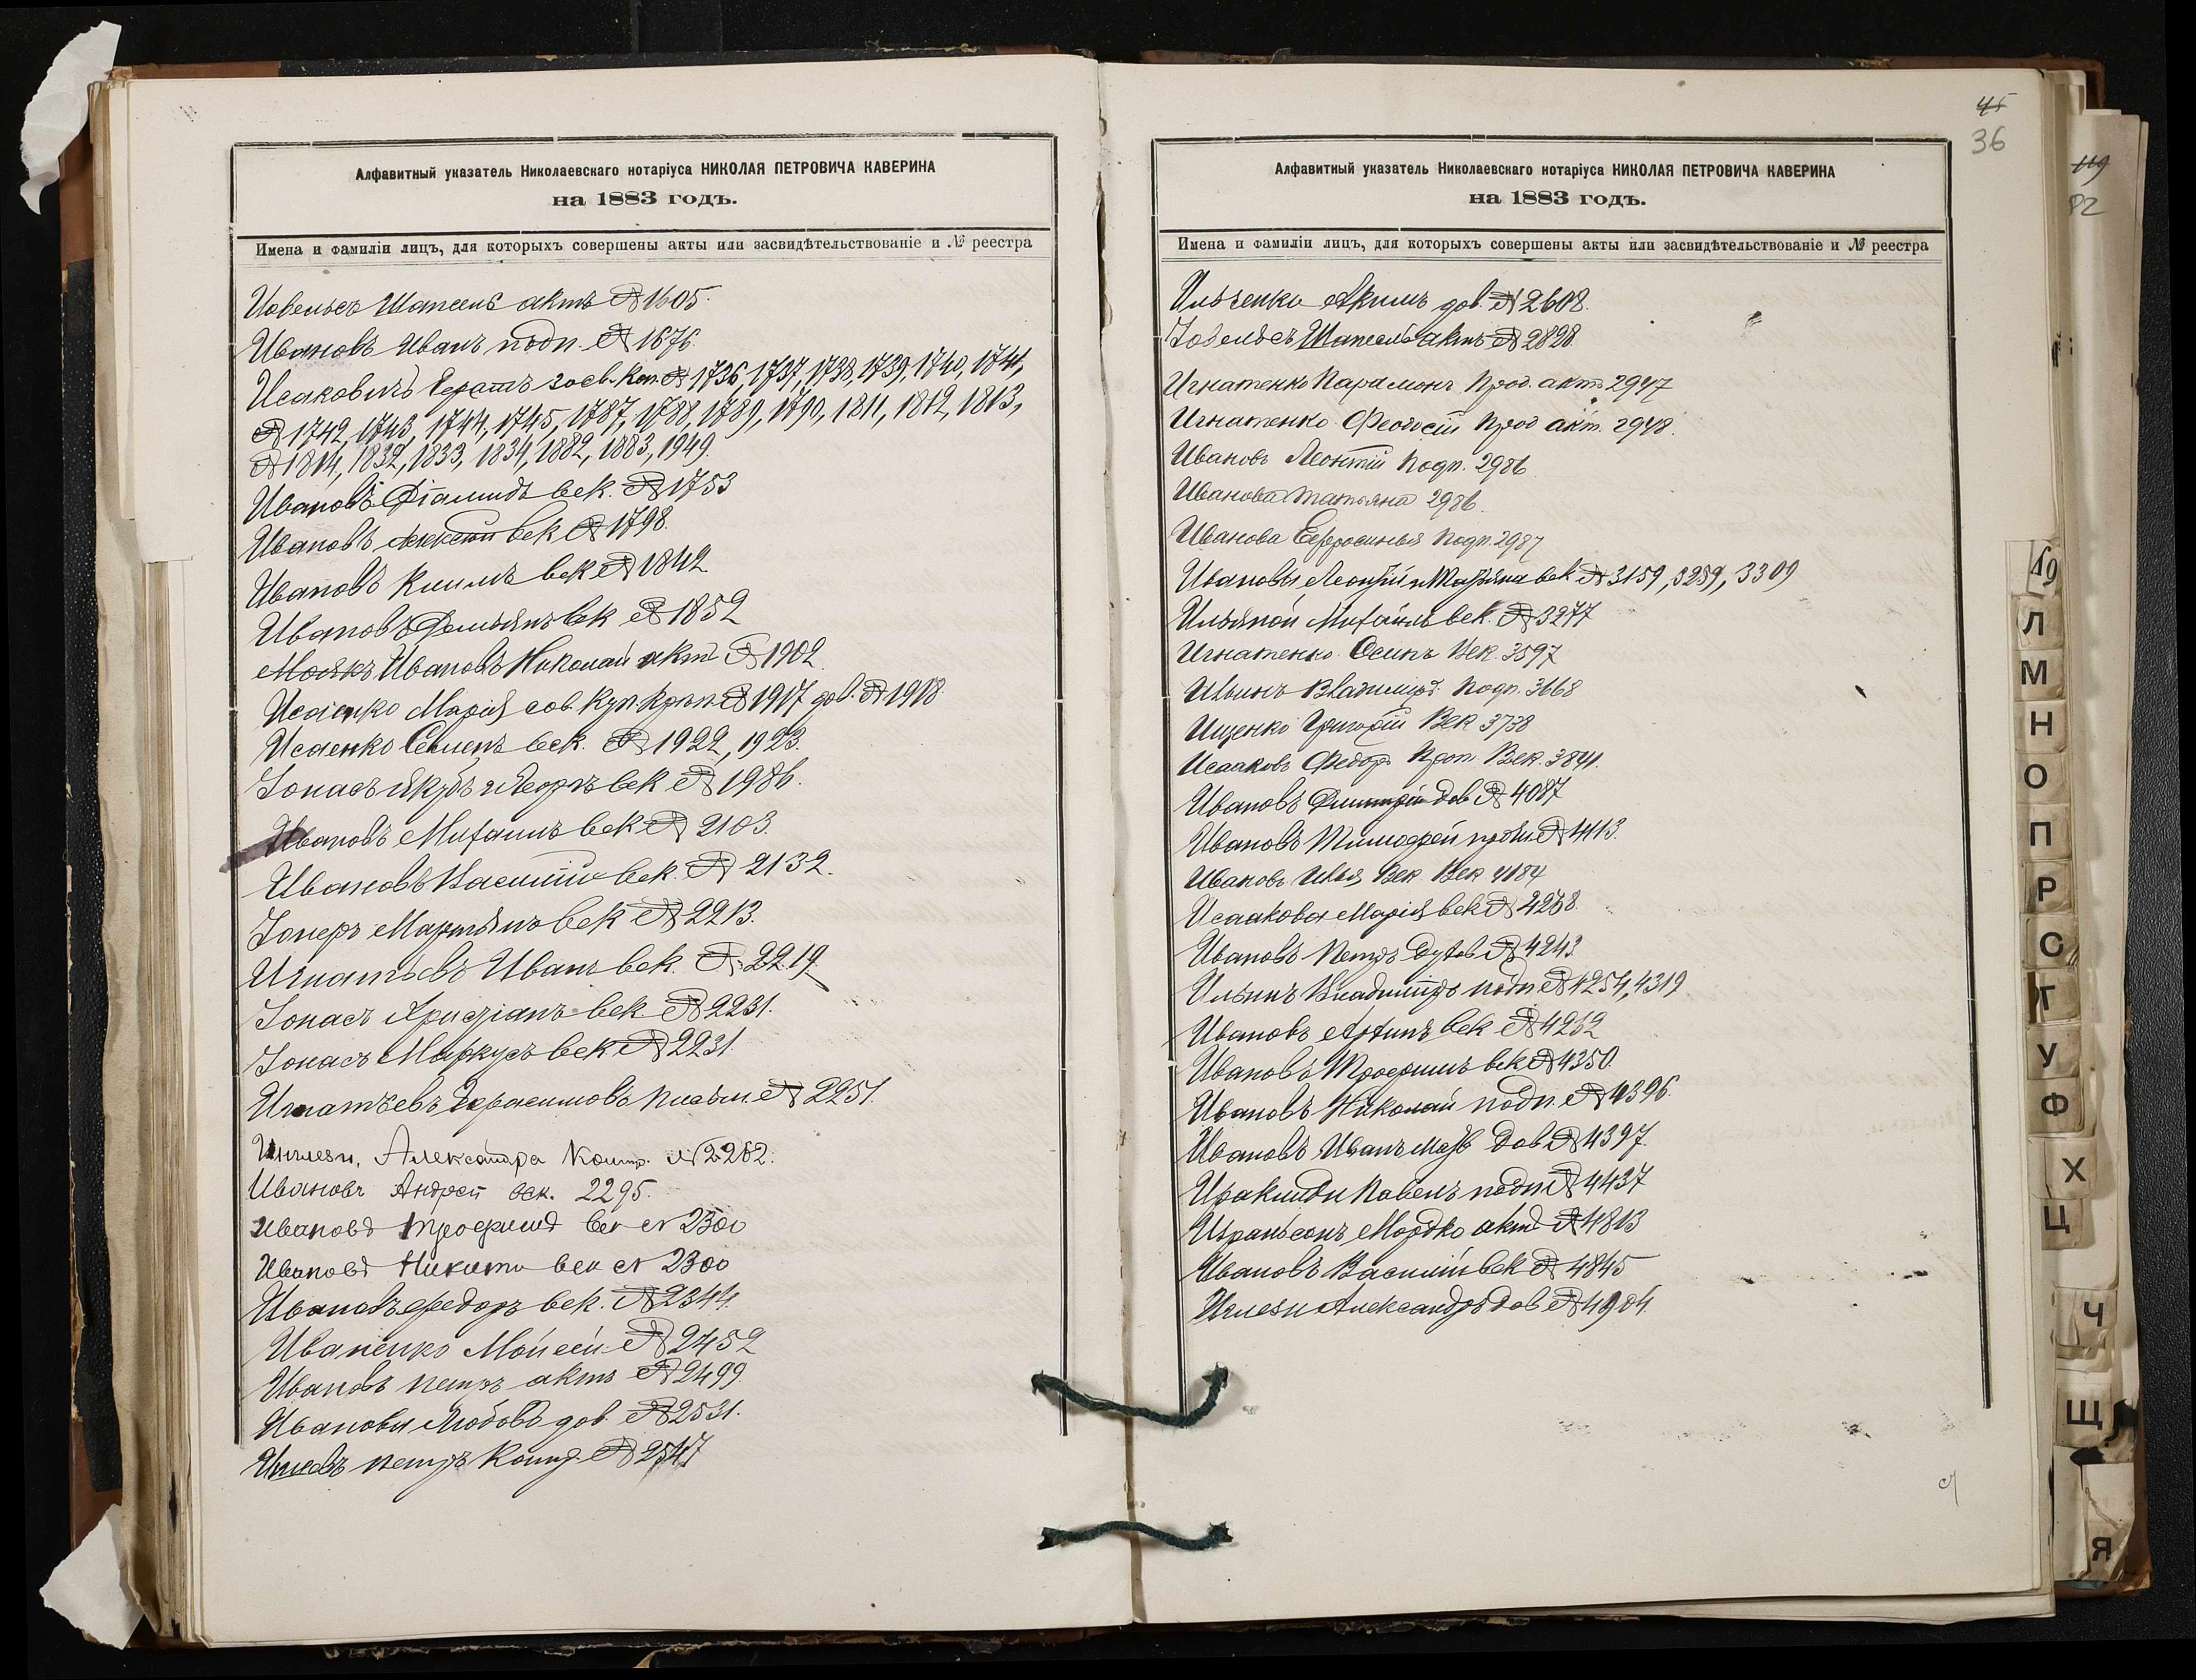 Алфавитный указатель Николаевскаго нотаріуса НИКОЛАЯ ПЕТРОВИЧА КАВЕРИНА
на 1883 годъ.
Имена и фамиліи лицъ, для которыхъ совершены акты или засвидѣтельствованіе и № реестра
актъ № 1605.
Ивановъ Иванъ подп. № 1676.
Исаковичъ № 1736, 1737, 1738, 1739, 1740, 1741,
№ 1742, 1743, 1744, 1745, 1787, 1788, 1789, 1790, 1811, 1812, 1813,
№ 1814, 1832, 1833, 1834, 1882, 1883, 1949.
Ивановъ век. № 1753
Ивановъ век № 1798.
Ивановъ Климъ век № 1842
Ивановъ Демьянъ век № 1852
Ивановъ Николай актъ № 1902.
Исаенко Марія № 1917 дов. № 1918
Исаенко Семенъ век. № 1922, 1923.
Іонасъ Якубъ и век № 1986.
Ивановъ Михаилъ век № 2103.
Ивановъ Василій век. № 2132.
Мартынъ век № 2213.
Игнатьевъ Иванъ век. № 2219.
Іонасъ Христіанъ век № 2231.
Іонасъ Маркусъ век № 2231.
Игнатьевъ № 2251.
Инглези, Александра Контр. № 2282.
Ивановъ Андрей век. 2295.
Ивановъ Трофимъ век № 2300
Ивановъ Никита век № 2300
Ивановъ Федоръ век. № 2344.
Иваненко Мойсей № 2452
Ивановъ Петръ актъ № 2499.
Иванова Любовь дов. № 2531.
Петръ № 2547
45
36
Алфавитный указатель Николаевскаго нотаріуса НИКОЛАЯ ПЕТРОВИЧА КАВЕРИНА
на 1883 годъ.
Имена и фамиліи лицъ, для которыхъ совершены акты или засвидѣтельствованіе и № реестра
Ильченко Акимъ дов. № 2608.
актъ № 2828.
Игнатенко Парамонъ Прод. актъ 2947
Игнатенко Феодосій Прод акт. 2948.
Ивановъ Леонтій подп. 2986
Иванова Татьяна 2986.
Иванова Евфросинья подп. 2987
Ивановы Леонтій и Татьяна век № 3159, 3259, 3309
Михаилъ век. № 3277
Игнатенко Осипъ Век. 3597
Ильинъ Владиміръ Подп. 3668
Ищенко Григорій Век 3738
Исааковъ Федоръ Прот Век. 3841.
Ивановъ Дмитрій дов № 4087
Ивановъ Тимофей № 4113.
Ивановъ Илья Век. Век 4184
Исаакова Марія век № 4238
Ивановъ Петръ № 4243
Ильинъ Владиміръ подп № 4254, 4319
Ивановъ век № 4252
Ивановъ Трофимъ век № 4350.
Ивановъ Николай подп. № 4396.
Ивановъ Иванъ дов № 4397.
Ираклиди Павелъ подп № 4437
Мордко актъ № 4813
Ивановъ Василій век № 4845
Инглези Александръ дов № 4904.
119
82
Л
М
Н
О
П
Р
С
Т
У
Ф
Х
Ц
Ч
Щ
Я